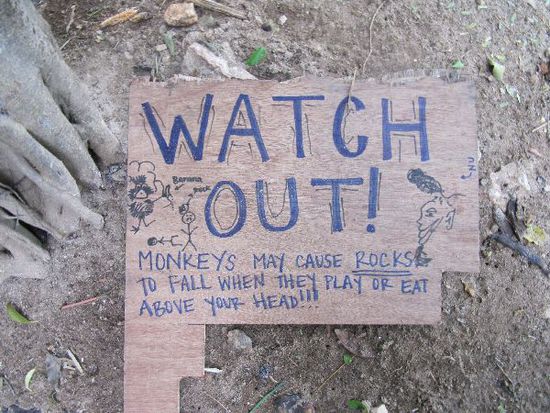 WATCH
OUT!
Banana
MONKEYS MAY CAUSE ROCKS
TO FALL WHEN THEY PLAY OR EAT
ABOVE YOUR HEAD!!!